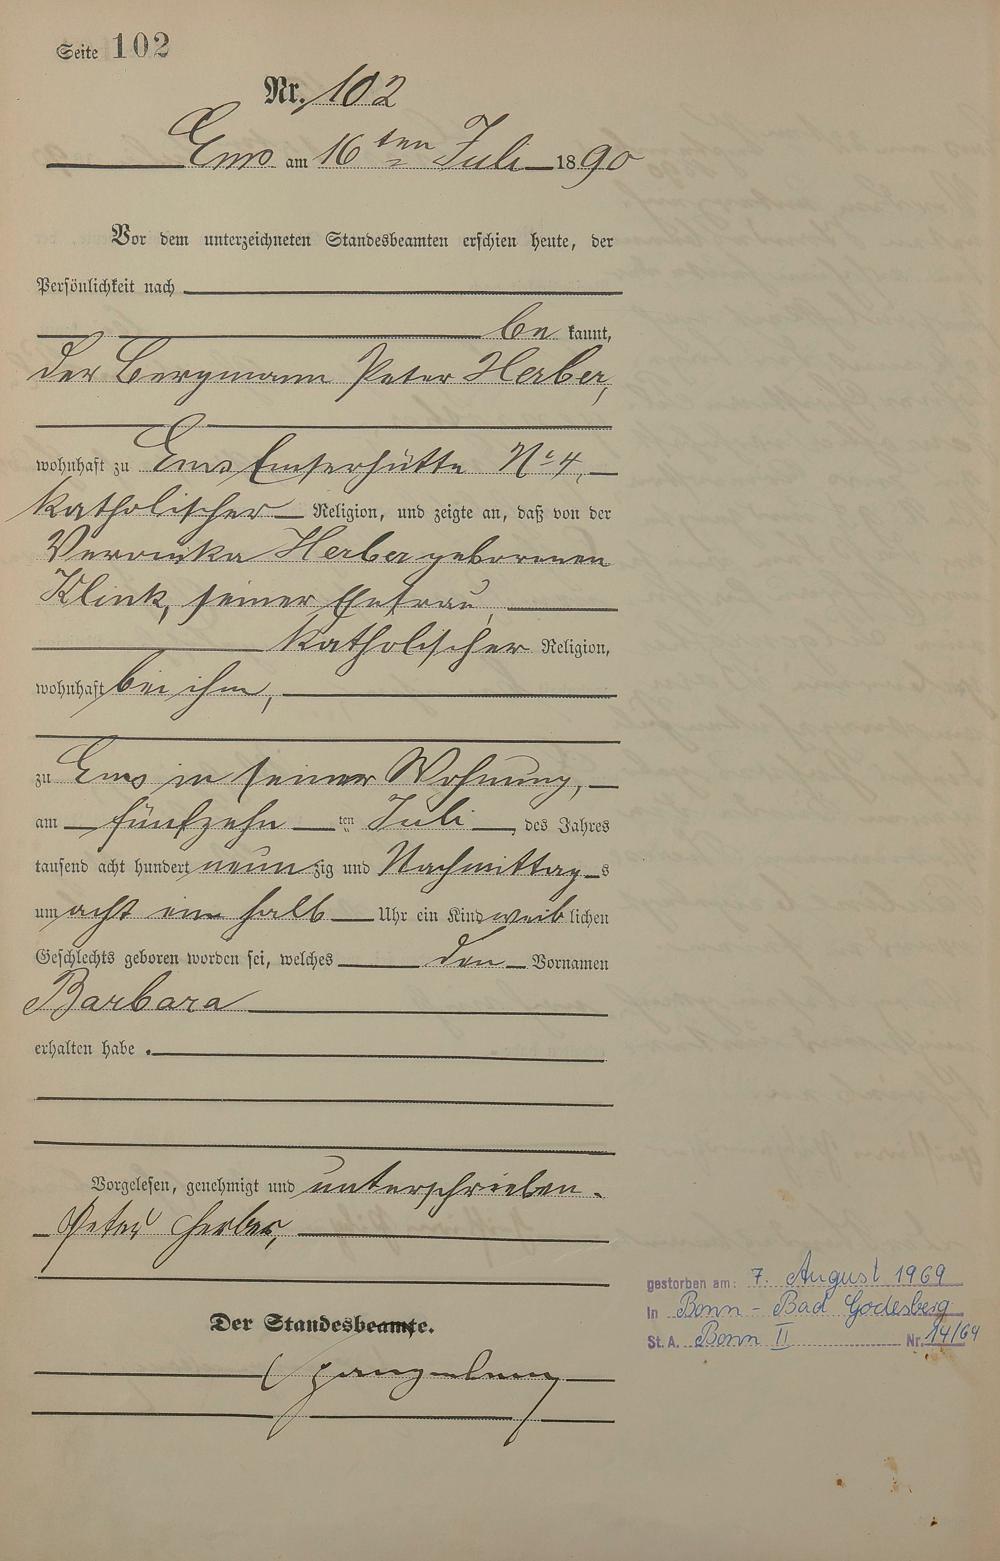 Seite 102
Nr. 102
Ems am 16ten Juli 1890
Vor dem unterzeichneten Standesbeamten erschien heute, der
Persönlichkeit nach
be kannt,
der Bergmann Peter Herber,
wohnhaft zu Ems Emserhütte No 4,
katholischer Religion, und zeigte an, daß von der
Veronika Herber geborenen
Klink, seiner Ehefrau,
katholischer Religion,
wohnhaft bei ihm,
zu Ems in seiner Wohnung,
am fünfzehn ten Juli, des Jahres
tausend acht hundert neun zig und Nachmittag s
um acht ein halb Uhr ein Kind weib lichen
Geschlechts geboren worden sei, welches den Vornamen
Barbara
erhalten habe.
Vorgelesen, genehmigt und unterschrieben.
Peter Herber,
Der Standesbeamte.
gestorben am: 7. August 1969
in Bonn - Bad Godesberg
St. A. Bonn II Nr. 14/69